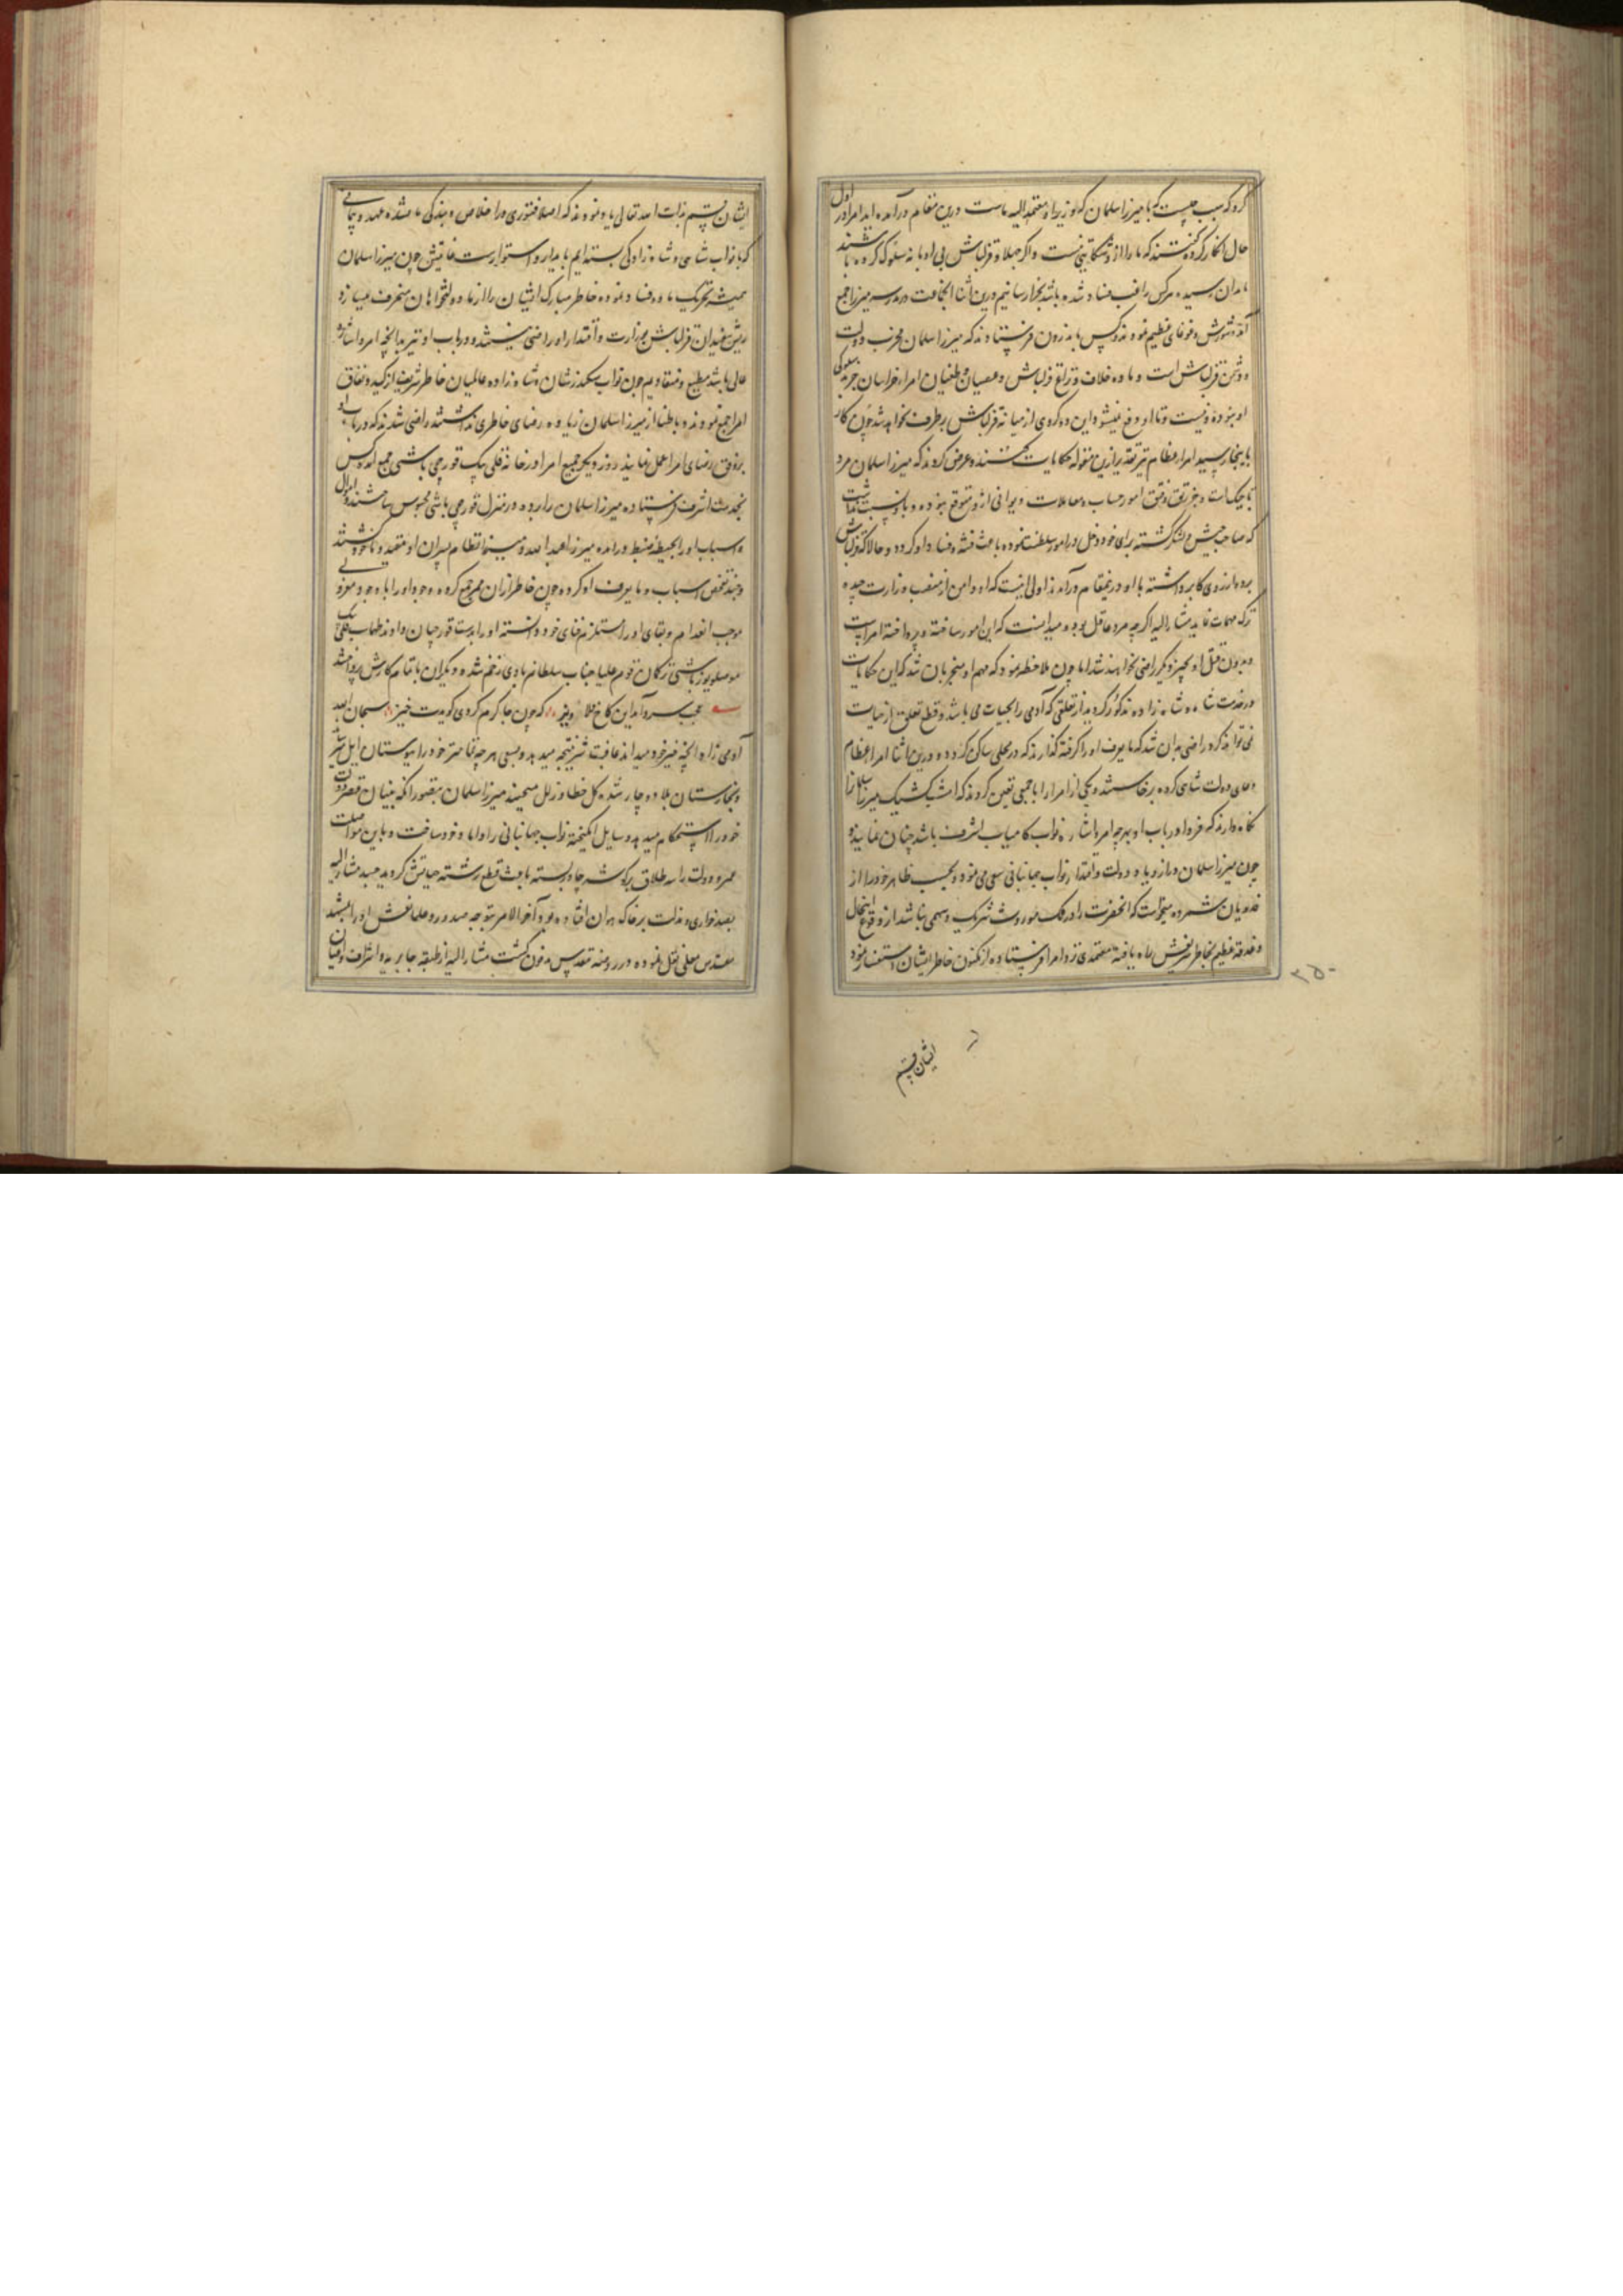 کرد که سبب چیست که با میرزا سلمان که وزیر و معتمد الیه ماست درین مقام درآمده اید امرا در اول
حال انکار کرده گفتند که ما را ازو شکایتی نیست و اگر جهلاء قزلباش بی ادبانه سلوک کرده باشند
بدان رسیده هرکس راغب فساد شده باشد بجزا رسانیم درین اثنا انجماعت در مدرسه میرزا جمع
آمده شورش و غوغای عظیم نموده کس باندرون فرستادند که میرزا سلمان مخرب دولت
و دشمن قزلباش است و ماده خلاف و نزاع قزلباش و عصیان و طغیان امراء خراسان جز بدسلوکی
او نبوده و نیست و تا او دفع نمیشود این دوگروهی از میانه قزلباش برطرف نخواهد شد چون کار
باینجا رسید امراء عظام بتقریب ازین مقوله حکایات گفتند و عرض کردند که میرزا سلمان مرد
تاجیک است و جز تفتیق امور حساب و معاملات دیوانی ازو متوقع نبوده و باو نسبت نداشت
که صاحب جیش و لشکر گشته برای خود دخل در امور سلطنت نموده باعث فتنه و فساد گردد و حالا که قزلباش
پرده از روی کار برداشته با او درینمقام درآمدند اولی اینست که او دامن از منصب وزارت چیده
ترک مهمات نماید مشار الیه اگرچه مرد عاقل بود و میدانست که این امور ساخته و پرداخته امراست
و بدون قتل او بچیز دیگر راضی نخواهند شد اما چون ملاحظه نمود که مهم او منجر بان شد که این حکایات
در خدمت شاه و شاهزاده مذکور گردید از تعلقی که آدمی را بحیات می باشد و قطع تعلق از حیات
نمی تواند کرد راضی بدان شد که مایعرف او را گرفته گذارند که در محلی ساکن گردد و درین اثنا امراء عظام
دعای دولت شاهی کرده برخاستند و یکی از امرا را با جمعی تعین کردند که امشب کشیک میرزا سلمان را
نگاه دارند که فردا در باب او بهرچه امر و اشاره نواب کامیاب اشرف باشد چنان نمایند و
چون میرزا سلمان در ازدیاد دولت و اقتدار نواب جهانبانی سعی می نمود و بحسب ظاهر خود را از
فدویان شمرده میخواست که انحضرت را در ملک موروث شریک و سهیمی نباشد از وقوع اینحال
دغدغه عظیم بخاطر شریفش راه یافته معتمدی نزد امرا فرستاده از مکنون خاطر ایشان استفسار نمود
۲۵۰
ایشان قسم
ایشان قسم بذات الله تعالی یاد نمودند که اصلا فتوری در اخلاص و بندگی ما نشده عهد و پیمانی
که با نواب شاهی و شاهزادگی بسته ایم پایدار و استوارست غایتش چون میرزا سلمان
همیشه تحریک ماده فساد نموده خاطر مبارک ایشان را از ما دولتخواهان منحرف میسازد
ریش سفیدان قزلباش بوزارت و اقتدار او راضی نیستند و در باب او نیز بدانچه امر و اشاره
عالی باشد مطیع و منقادیم چون نواب سکندر شان و شاهزاده عالمیان خاطر شریف از کید و نفاق
امرا جمع نمودند و باطنا از میرزا سلمان زیاده رضای خاطری نداشتند راضی شدند که در باب او
بروفق رضای امرا عمل نمایند روز دیگر جمیع امرا در خانه قلی بیک قورچی باشی جمع آمده کس
بخدمت اشرف فرستاده میرزا سلمان را برده در منزل قورچی باشی محبوس ساختند و اموال
و اسباب او را بحیطه ضبط درآمده میرزا عبد الله و میرزا نظام پسران او مقید و ماخوذ گشتند
و چند تفحص اسباب و مایعرف او کرده چون خاطر از آن ممر جمع کردند وجود او را با وجود معزولی
موجب انعدام و بقای او را مستلزم فنای خود دانسته او را بدست قورچیان دادند طهماسب قلی بیک
موصلو یوزباشی ترکمان قوم علیا جناب سلطانم باوی زخم زده و دیگران باتمام کارش پرداختند
عجب سرو آمد این کاخ دلاویز که چون جا گرم کردی گویدت خیز سبحان الله
آدمی زاد آنچه خیر خود میداند عاقبت شر نتیجه میدهد و بسعی هرچه تمامتر خود را
بلا دوچار شده گل خطا و زلل میچیند میرزا سلمان بتصور آنکه بنیان قصر دولت
خود را استحکام میدهد وسایل انگیخته نواب جهانبانی را داماد خود ساخت و باین مواصلت
عمر و دولت را سه طلاق بر گوشه چادر بسته باعث قطع رشته حیاتش گردید جسد مشار الیه
بصد خواری و مذلت بر خاک هوان افتاده بود آخر الامر بتوجه صدور و علما نعش او را بمشهد
مقدس معلی نقل نموده در روضه مقدس مدفون گشت مشار الیه از طبقه جابریه و اشراف و اعیان